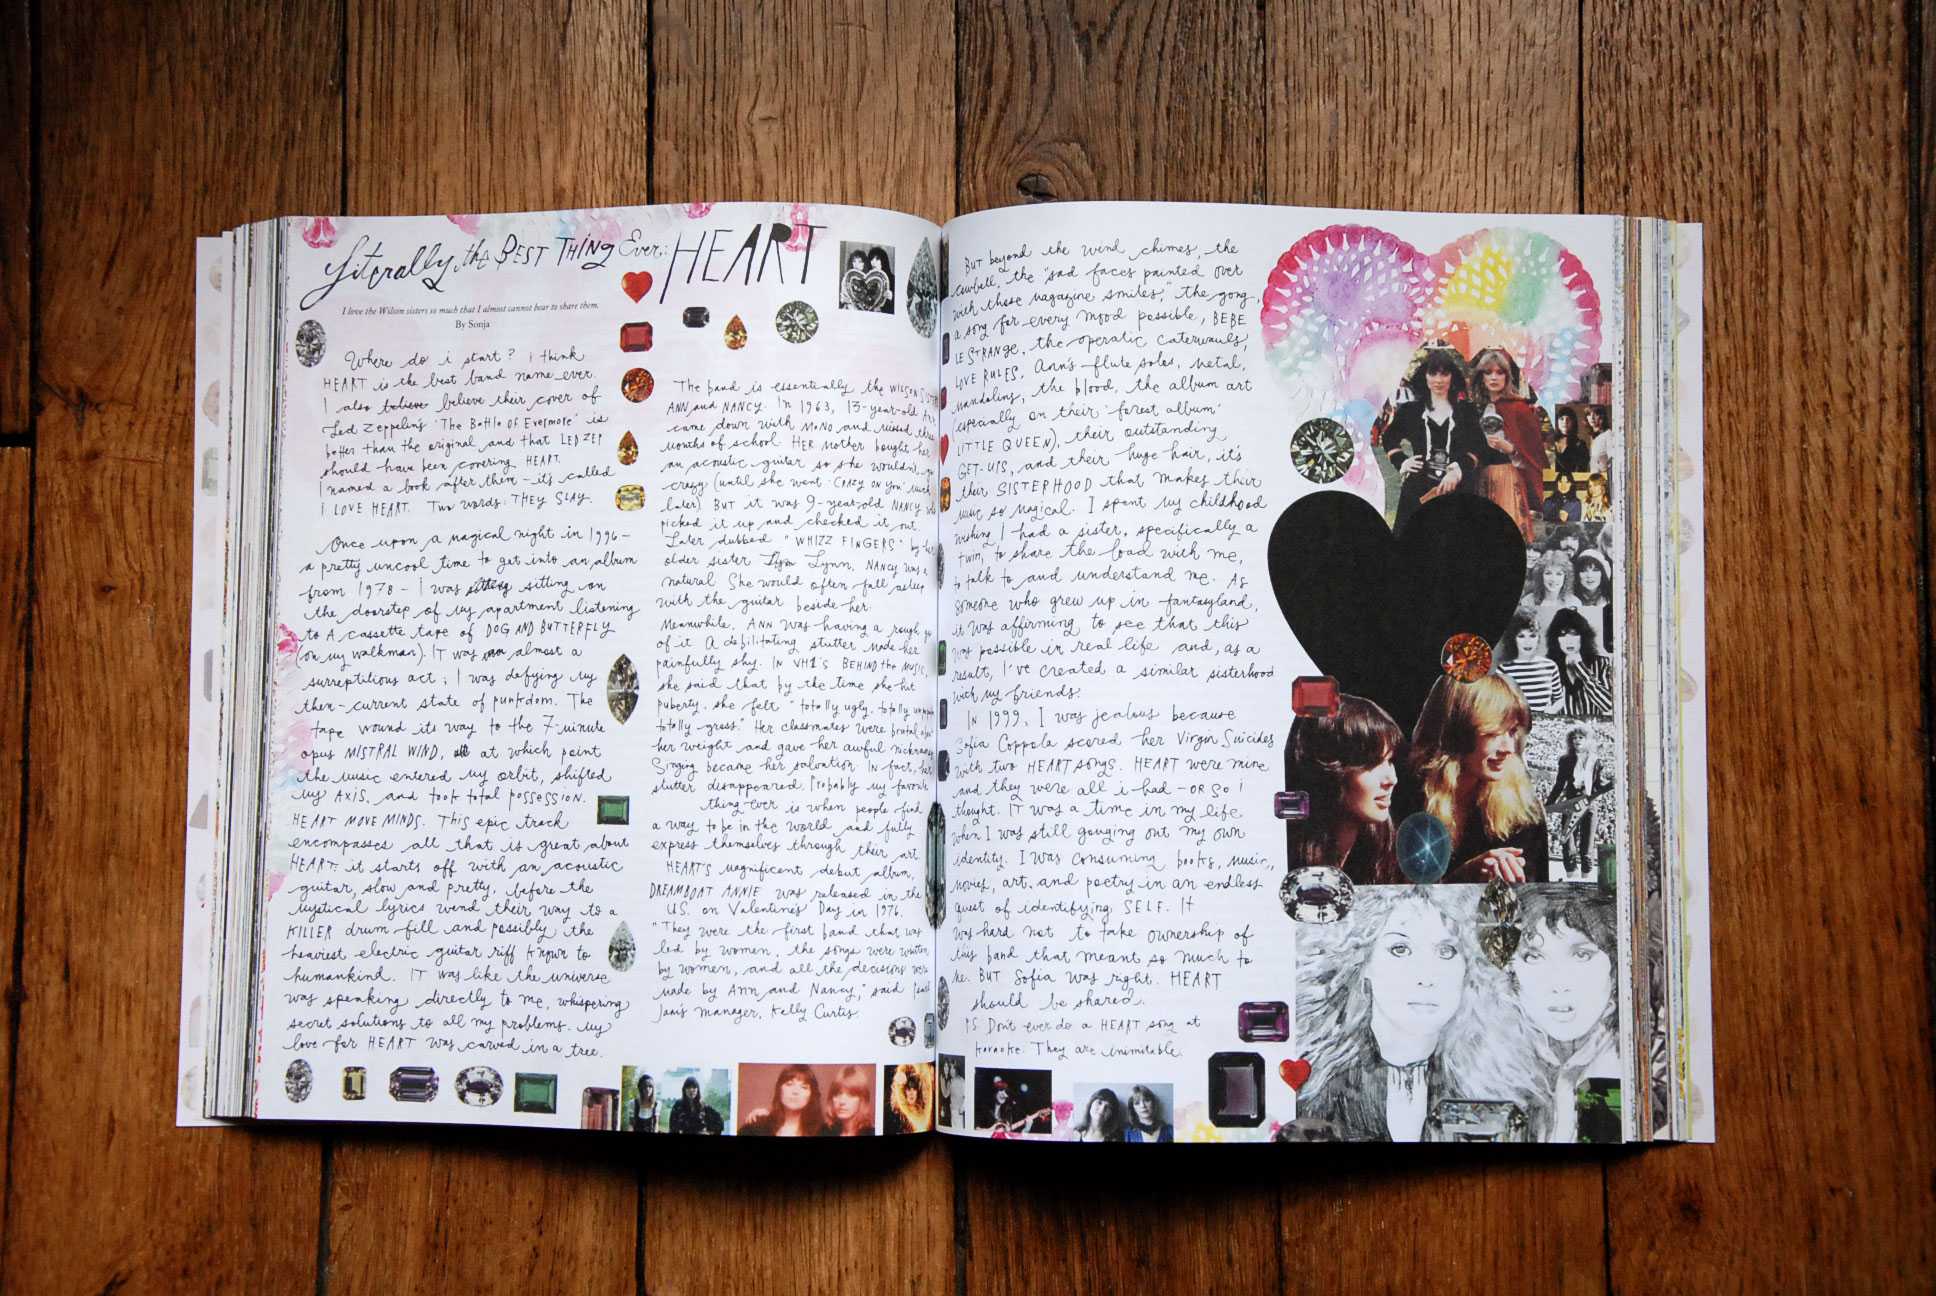 Literally the BEST THING Ever: HEART
I love the Wilson sisters so much that I almost cannot bear to share them.
By Sonja
Where do i start? i think
HEART is the best band name ever.
I also believe believe their cover of
Led Zeppelin's 'The Battle of Evermore' is
better than the original and that LED ZEP
should have been covering HEART.
I named a book after them – it's called
I LOVE HEART. Two words: THEY SLAY.
Once upon a magical night in 1996 –
a pretty uncool time to get into an album
from 1978 – I was sitting on
the doorstep of my apartment listening
to A cassette tape of DOG AND BUTTERFLY
(on my walkman). IT was almost a
surreptitious act; I was defying my
then-current state of punkdom. The
tape wound its way to the 7-minute
opus MISTRAL WIND, at which point
the music entered my orbit, shifted
my AXIS, and took total possession.
HEART MOVE MINDS. This epic track
encompasses all that is great about
HEART: it starts off with an acoustic
guitar, slow and pretty, before the
mystical lyrics wend their way to a
KILLER drum fill and possibly the
heaviest electric guitar riff known to
humankind. IT was like the universe
was speaking directly to me, whispering
secret solutions to all my problems. my
love for HEART was carved in a tree.
The band is essentially the WILSON
ANN and NANCY. In 1963, 13-year-old Ann
came down with MONO and missed three
months of school. HER mother bought her
an acoustic guitar so she wouldn't go
crazy (until she went 'CRAZY ON YOU' much
later). BUT it was 9-year-old NANCY who
picked it up and checked it out.
Later dubbed "WHIZZ FINGERS" by her
older sister Lynn, NANCY was a
natural. She would often fall asleep
with the guitar beside her.
Meanwhile, ANN was having a rough go
of it. A debilitating stutter made her
painfully shy. IN VH1's BEHIND the MUSIC,
she said that by the time she hit
puberty, she felt "totally ugly, totally
totally gross." Her classmates were brutal about
her weight and gave her awful nicknames.
Singing became her salvation. IN fact, her
stutter disappeared. Probably my favorite
thing ever is when people find
a way to be in the world and fully
express themselves through their art.
HEART'S magnificent debut album,
DREAMBOAT ANNIE was released in the
U.S. on Valentine's Day in 1976.
"They were the first band that was
led by women, the songs were written
by women, and all the decisions were
made by Ann and Nancy," said
manager, Kelly Curtis.
BUT beyond the wind chimes, the
cowbell, the "sad faces painted over
with those magazine smiles," the gong,
a song for every mood possible, BEBE
LE STRANGE, the operatic caterwauls,
LOVE RULES, Ann's flute solos, metal,
mandolins, the blood, the album art
(especially on their 'forest album'
LITTLE QUEEN), their outstanding
GET-UPS, and their huge hair, it's
their SISTERHOOD that makes their
music so magical. I spent my childhood
wishing I had a sister, specifically a
twin, to share the load with me,
to talk to and understand me. As
someone who grew up in fantasyland,
it was affirming to see that this
was possible in real life and, as a
result, I've created a similar sisterhood
with my friends.
IN 1999, I was jealous because
Sofia Coppola scored her Virgin Suicides
with two HEART songs. HEART were mine
and they were all i had – OR SO I
thought. IT was a time in my life
when I was still gouging out my own
identity. I was consuming books, music,
movies, art, and poetry in an endless
quest of identifying SELF. It
was hard not to take ownership of
this band that meant so much to
me. BUT Sofia was right. HEART
should be shared.
PS Don't ever do a HEART song at
karaoke. They are inimitable.